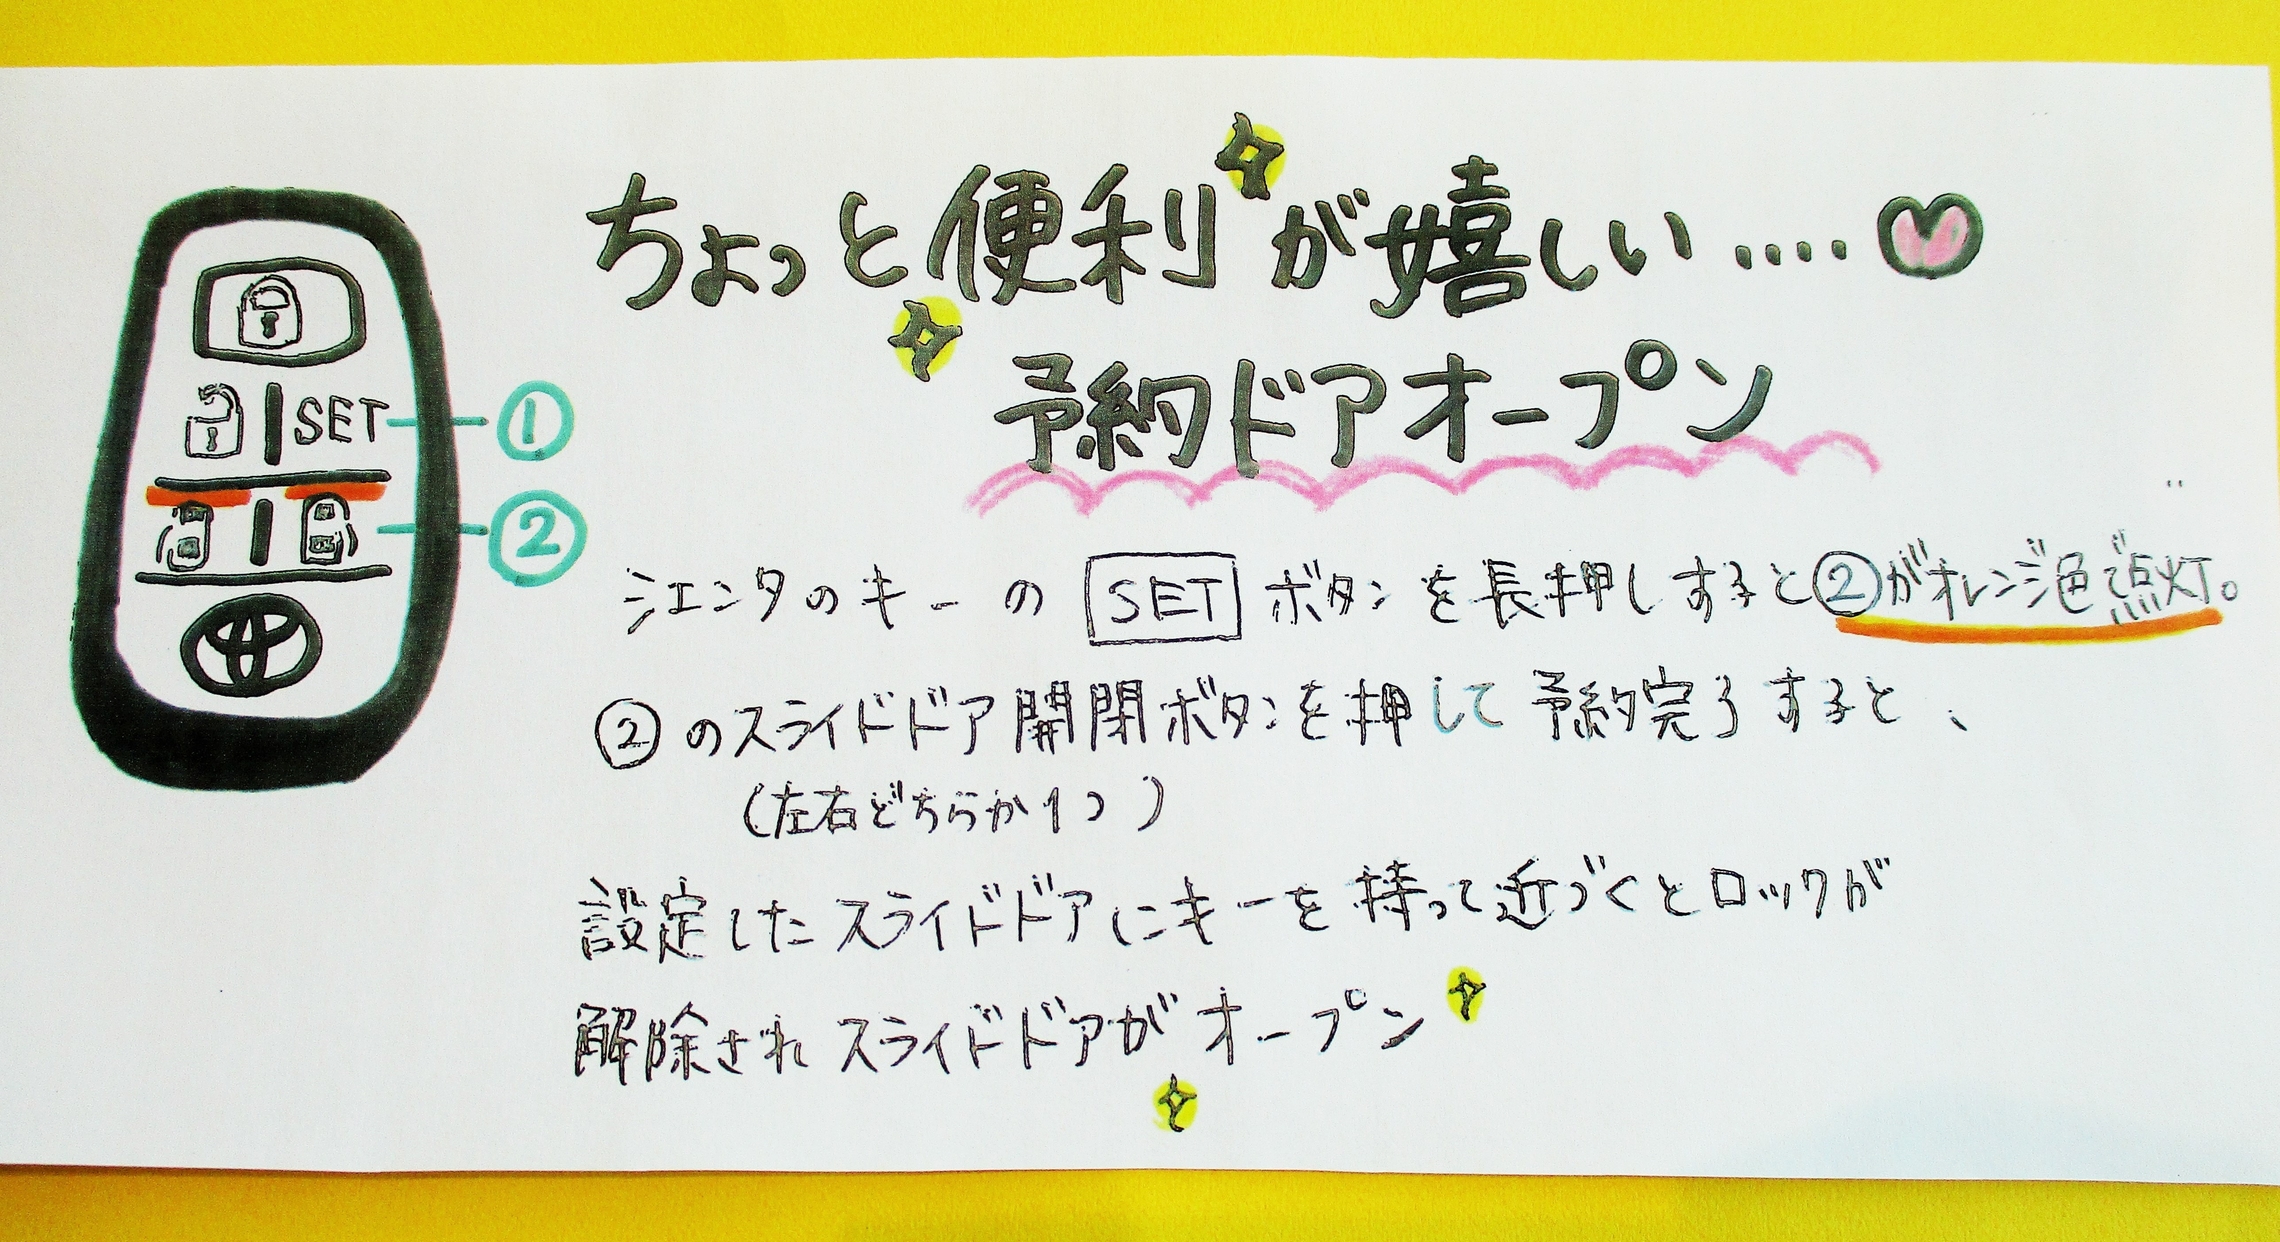 ちょっと便利が嬉しい....
予約ドアオープン
SET ①
②
シエンタのキーの SET ボタンを長押しすると②がオレンジ色で点灯。
②のスライドドア開閉ボタンを押して予約完了すると、
(左右どちらか1つ)
設定したスライドドアにキーを持って近づくとロックが
解除されスライドドアがオープン